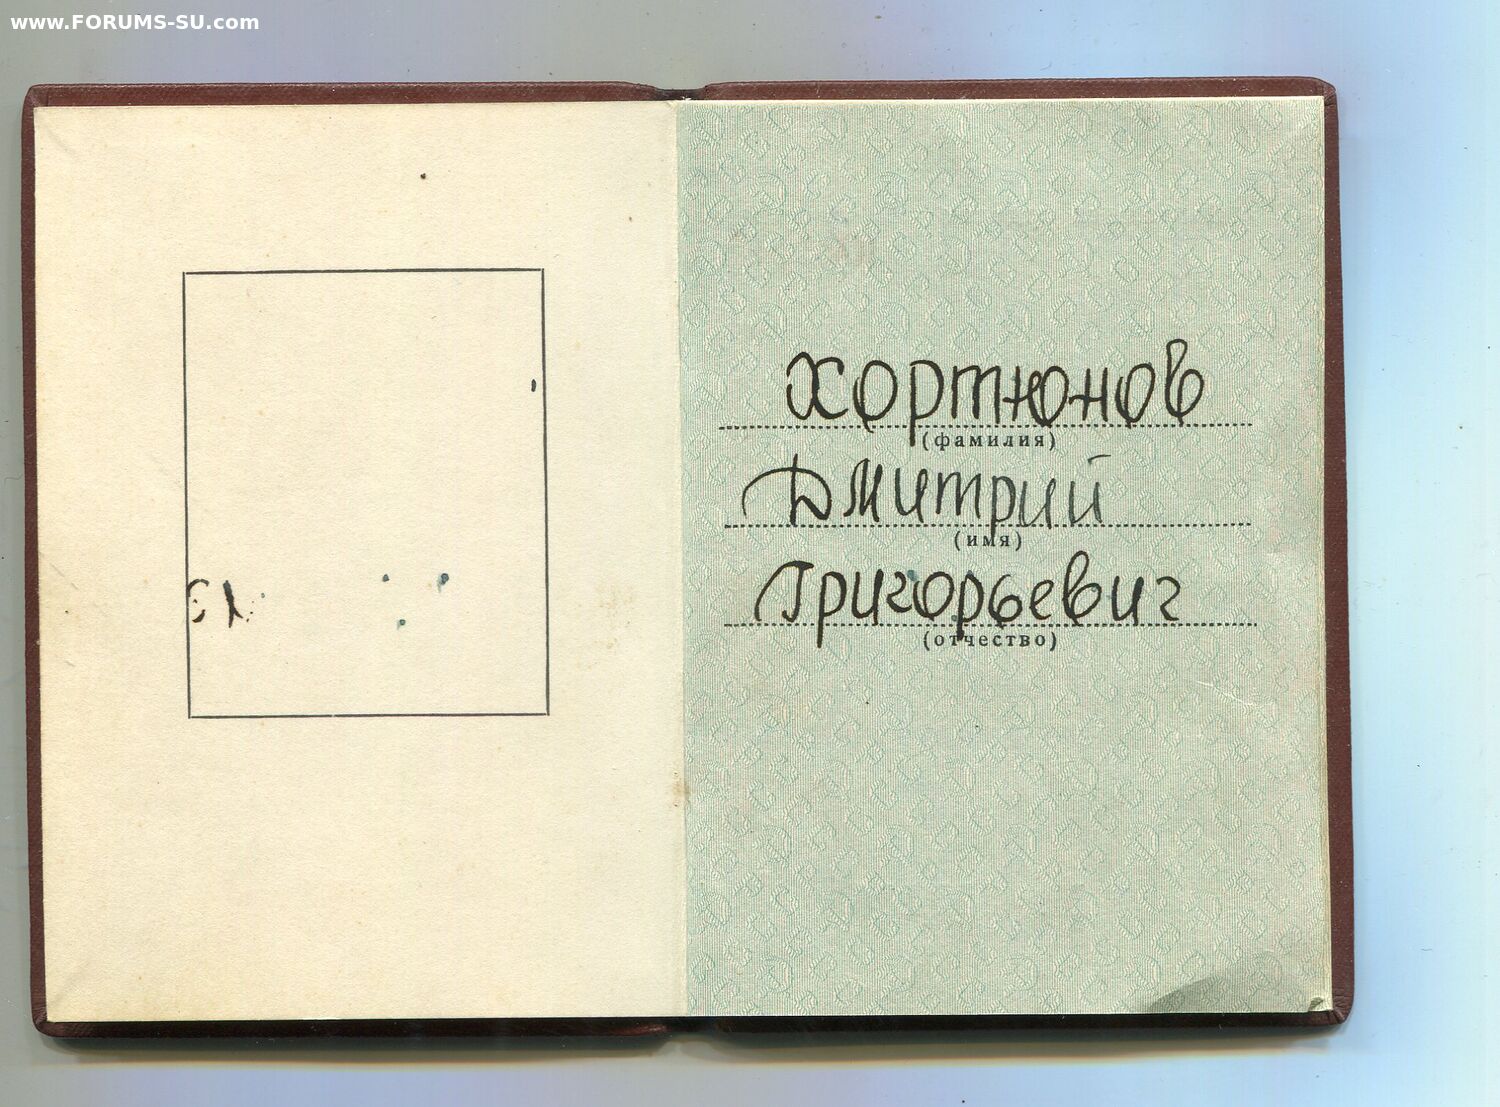 www.FORUMS-SU.com
Хортюнов
(фамилия)
Дмитрий
(имя)
Григорьевич
(отчество)